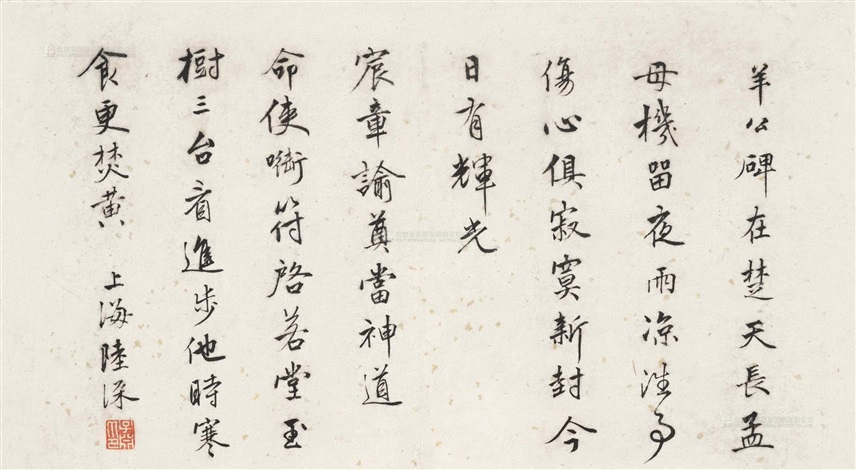 羊公碑在楚天長孟
母機留夜雨凉往事
傷心俱寂寞新封今
日有輝光
宸章諭奠當神道
命使啣符啓若堂玉
樹三台看進步他時寒
食更焚黄 上海陸深